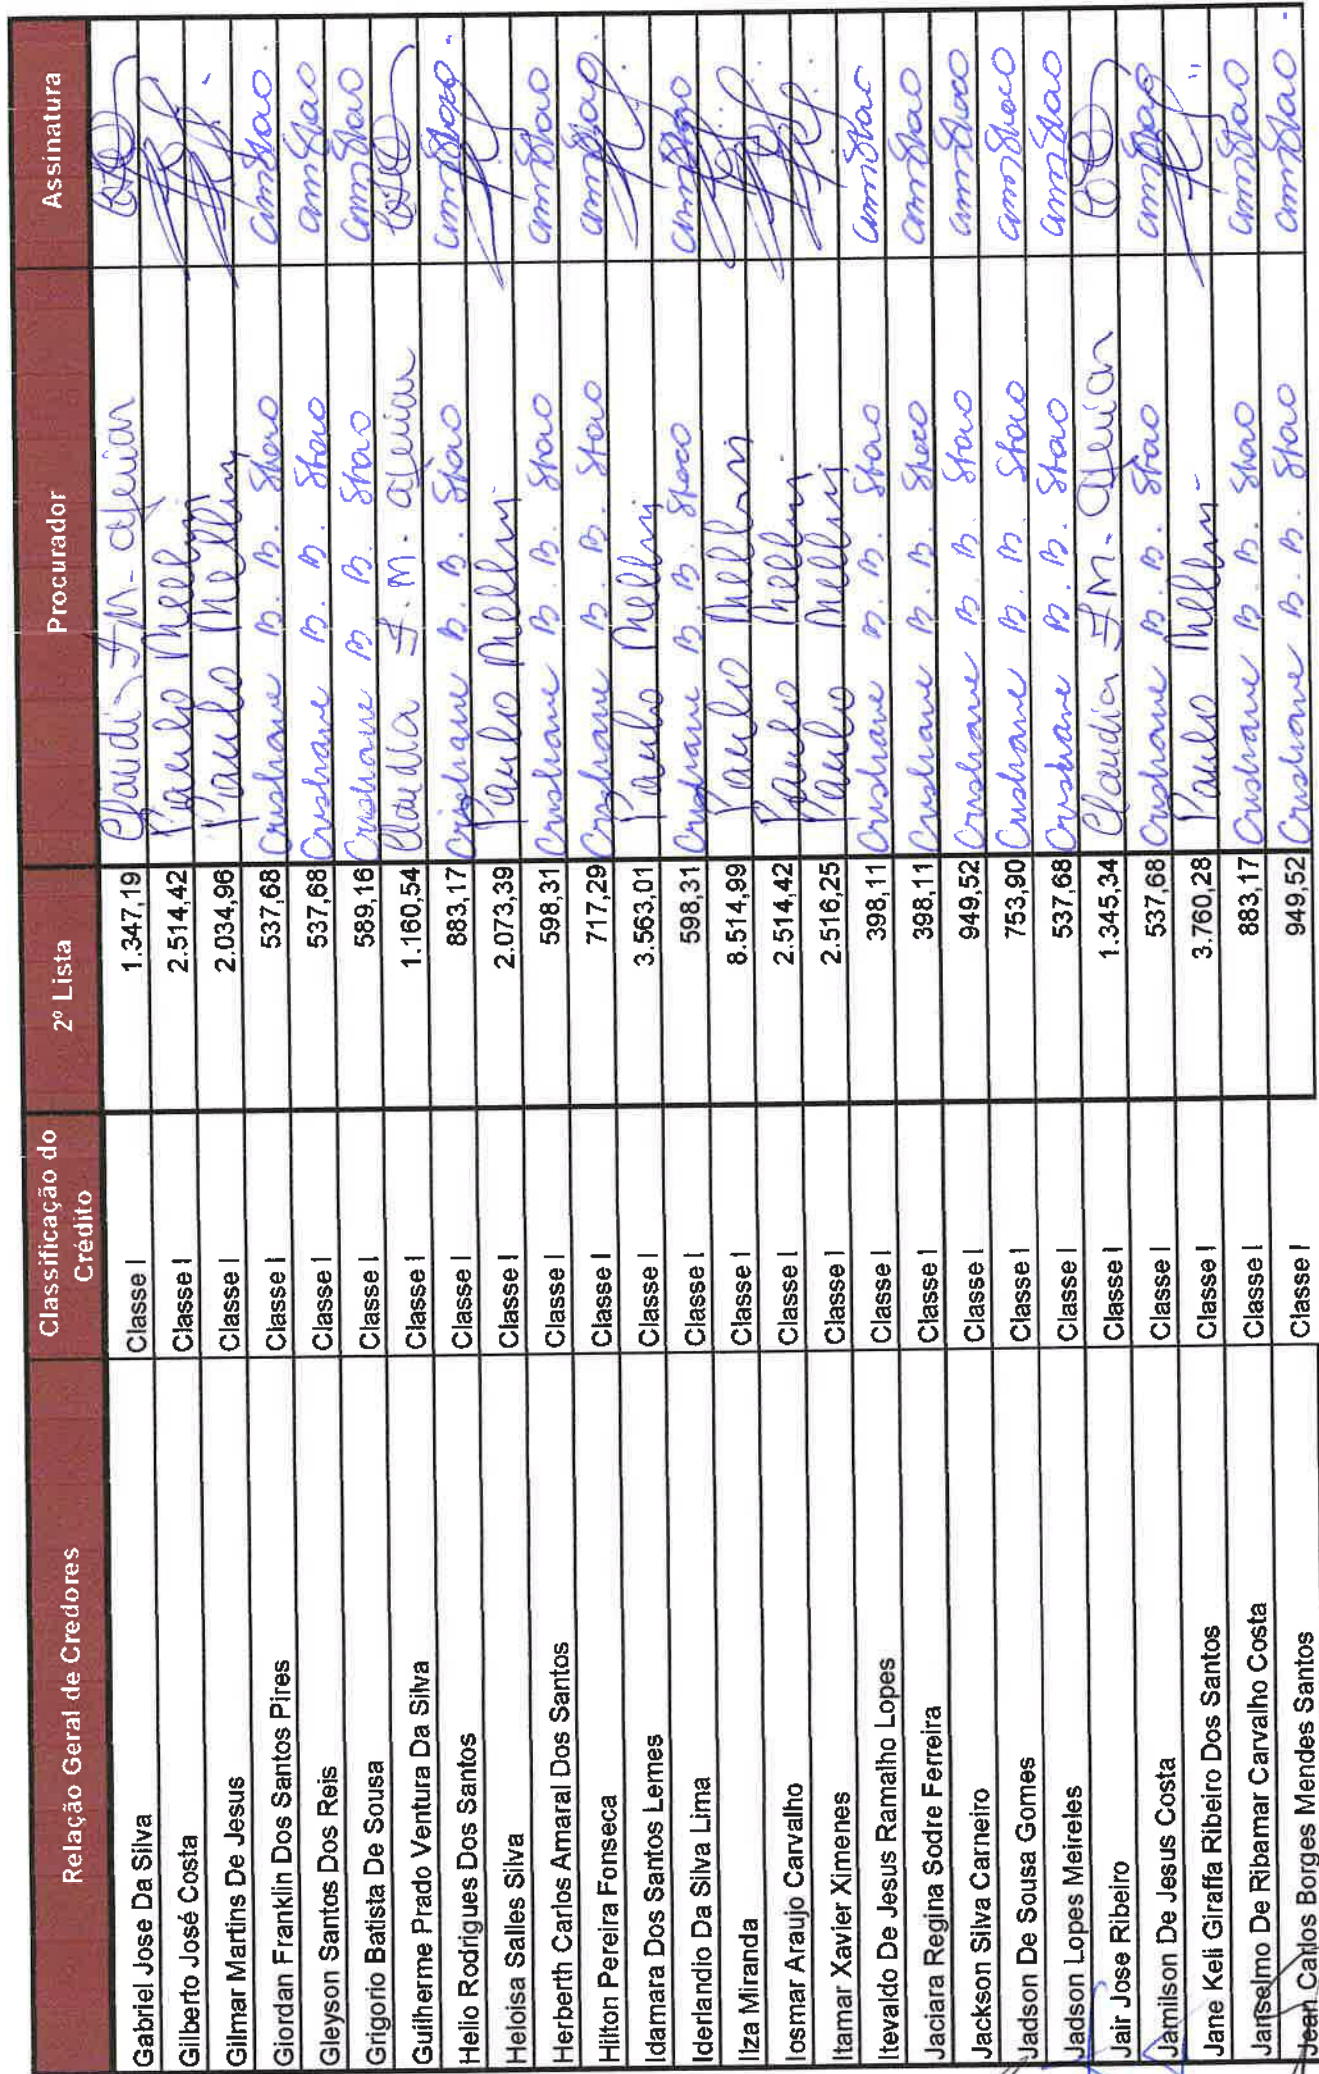 Relação Geral de Credores Classificação do Crédito 2º Lista Procurador Assinatura
Gabriel Jose Da Silva Classe I 1.347,19 Claudia
Gilberto José Costa Classe I 2.514,42 Paulo Mellin
Gilmar Martins De Jesus Classe I 2.034,96 Paulo Mellin
Giordan Franklin Dos Santos Pires Classe I 537,68 Cristiane B. B.
Gleyson Santos Dos Reis Classe I 537,68 Cristiane B.
Grigorio Batista De Sousa Classe I 589,16 Cristiane B B.
Guilherme Prado Ventura Da Silva Classe I 1.160,54 Claudia
Helio Rodrigues Dos Santos Classe I 883,17 Cristiane B. B.
Heloisa Salles Silva Classe I 2.073,39 Paulo Mellin
Herberth Carlos Amaral Dos Santos Classe I 598,31 Cristiane B B.
Hilton Pereira Fonseca Classe I 717,29 Cristiane B. B.
Idamara Dos Santos Lemes Classe I 3.563,01 Paulo Mellin
Iderlandio Da Silva Lima Classe I 598,31 Cristiane B. B.
Ilza Miranda Classe I 8.514,99 Paulo Mellin
Iosmar Araujo Carvalho Classe I 2.514,42 Paulo Mellin
Itamar Xavier Ximenes Classe I 2.516,25 Paulo Mellin
Itevaldo De Jesus Ramalho Lopes Classe I 398,11 Cristiane B. B.
Jaciara Regina Sodre Ferreira Classe I 398,11 Cristiane B. B.
Jackson Silva Carneiro Classe I 949,52 Cristiane B. B.
Jadson De Sousa Gomes Classe I 753,90 Cristiane B. B.
Jadson Lopes Meireles Classe I 537,68 Cristiane B. B.
Jair Jose Ribeiro Classe I 1.345,34 Claudia
Jamilson De Jesus Costa Classe I 537,68 Cristiane B. B.
Jane Keli Giraffa Ribeiro Dos Santos Classe I 3.760,28 Paulo Mellin
Janselmo De Ribamar Carvalho Costa Classe I 883,17 Cristiane B. B.
Jean Carlos Borges Mendes Santos Classe I 949,52 Cristiane B. B.